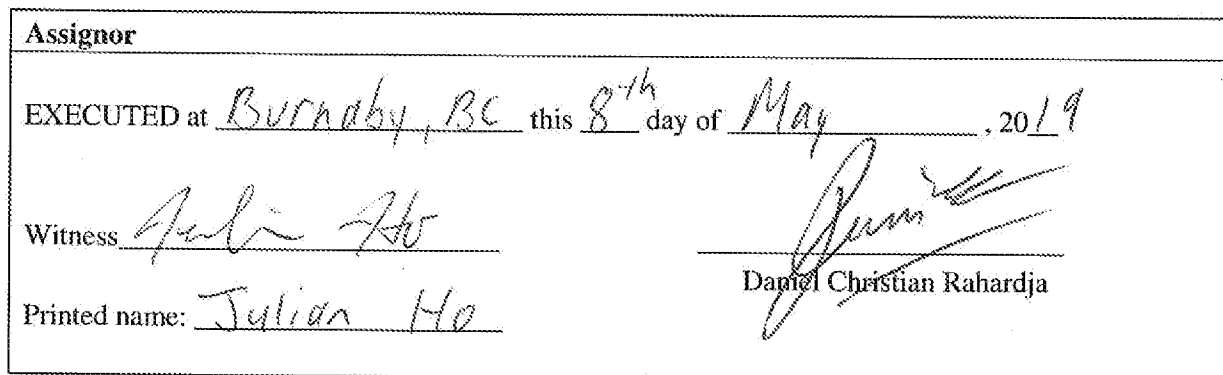 Assignor
EXECUTED at Burnaby, BC this 8th day of May, 2019
Witness Julian Ho
Daniel Christian Rahardja
Printed name: Julian Ho